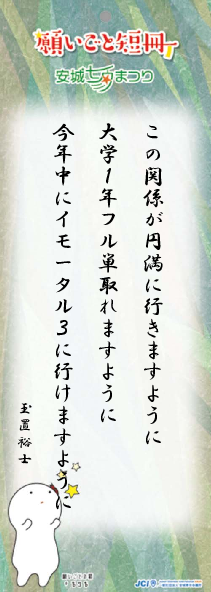 願いごと短冊
安城七夕まつり
この関係が円満に行きますように
大学1年フル単取れますように
今年中にイモータル3に行けますように
玉置裕士
願いごと短冊
JCI